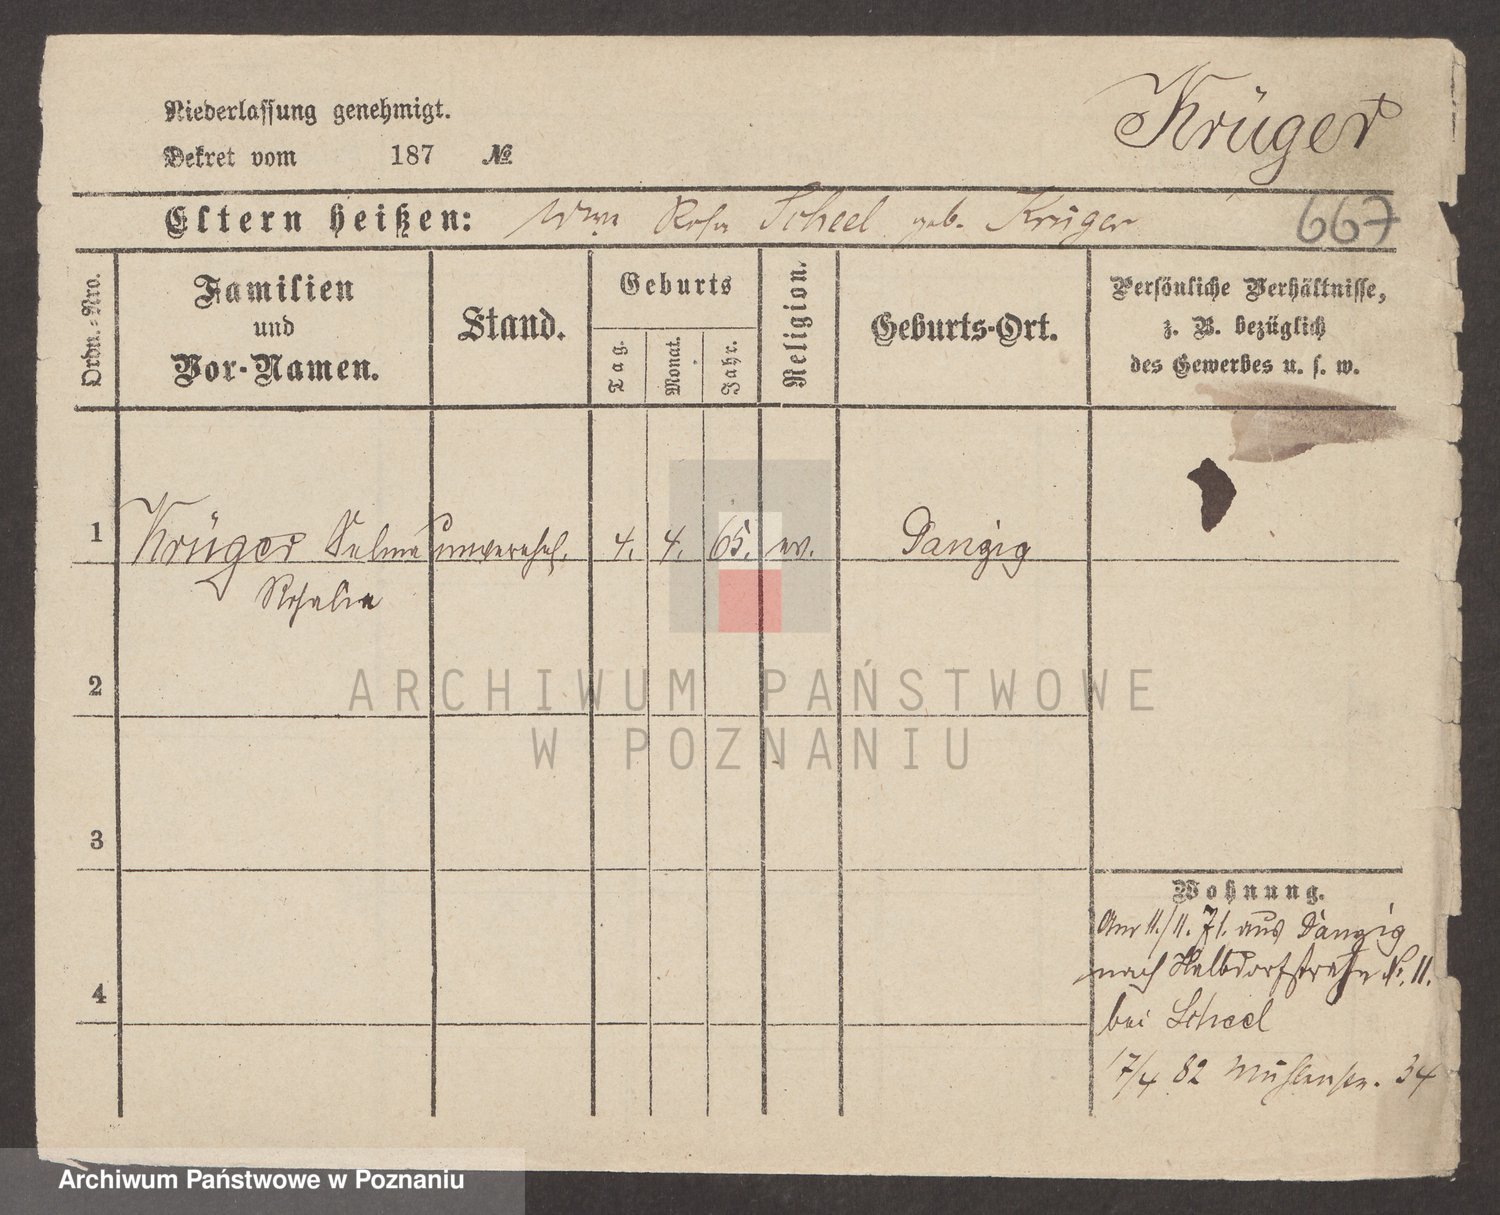 Niederlassung genehmigt.
Krüger
Dekret vom 187 №
Eltern heißen: Wwe Rosa Scheel geb. Krüger
667
Ordn.-Nro.
Familien
und
Vor-Namen.
Stand.
Geburts
Tag.
Monat.
Jahr.
Religion.
Geburts-Ort.
Persönliche Verhältnisse,
z. B. bezüglich
des Gewerbes u. s. w.
1 Krüger Selma unverehel. 4. 4. 65. ev. Danzig
Rosalie
2
3
4
Wohnung.
Am 11./11. 71. aus Danzig
nach Halbdorfstraße No. 11.
bei Scheel
17/4 82 Mühlenstr. 34
ARCHIWUM PAŃSTWOWE
W POZNANIU
Archiwum Państwowe w Poznaniu